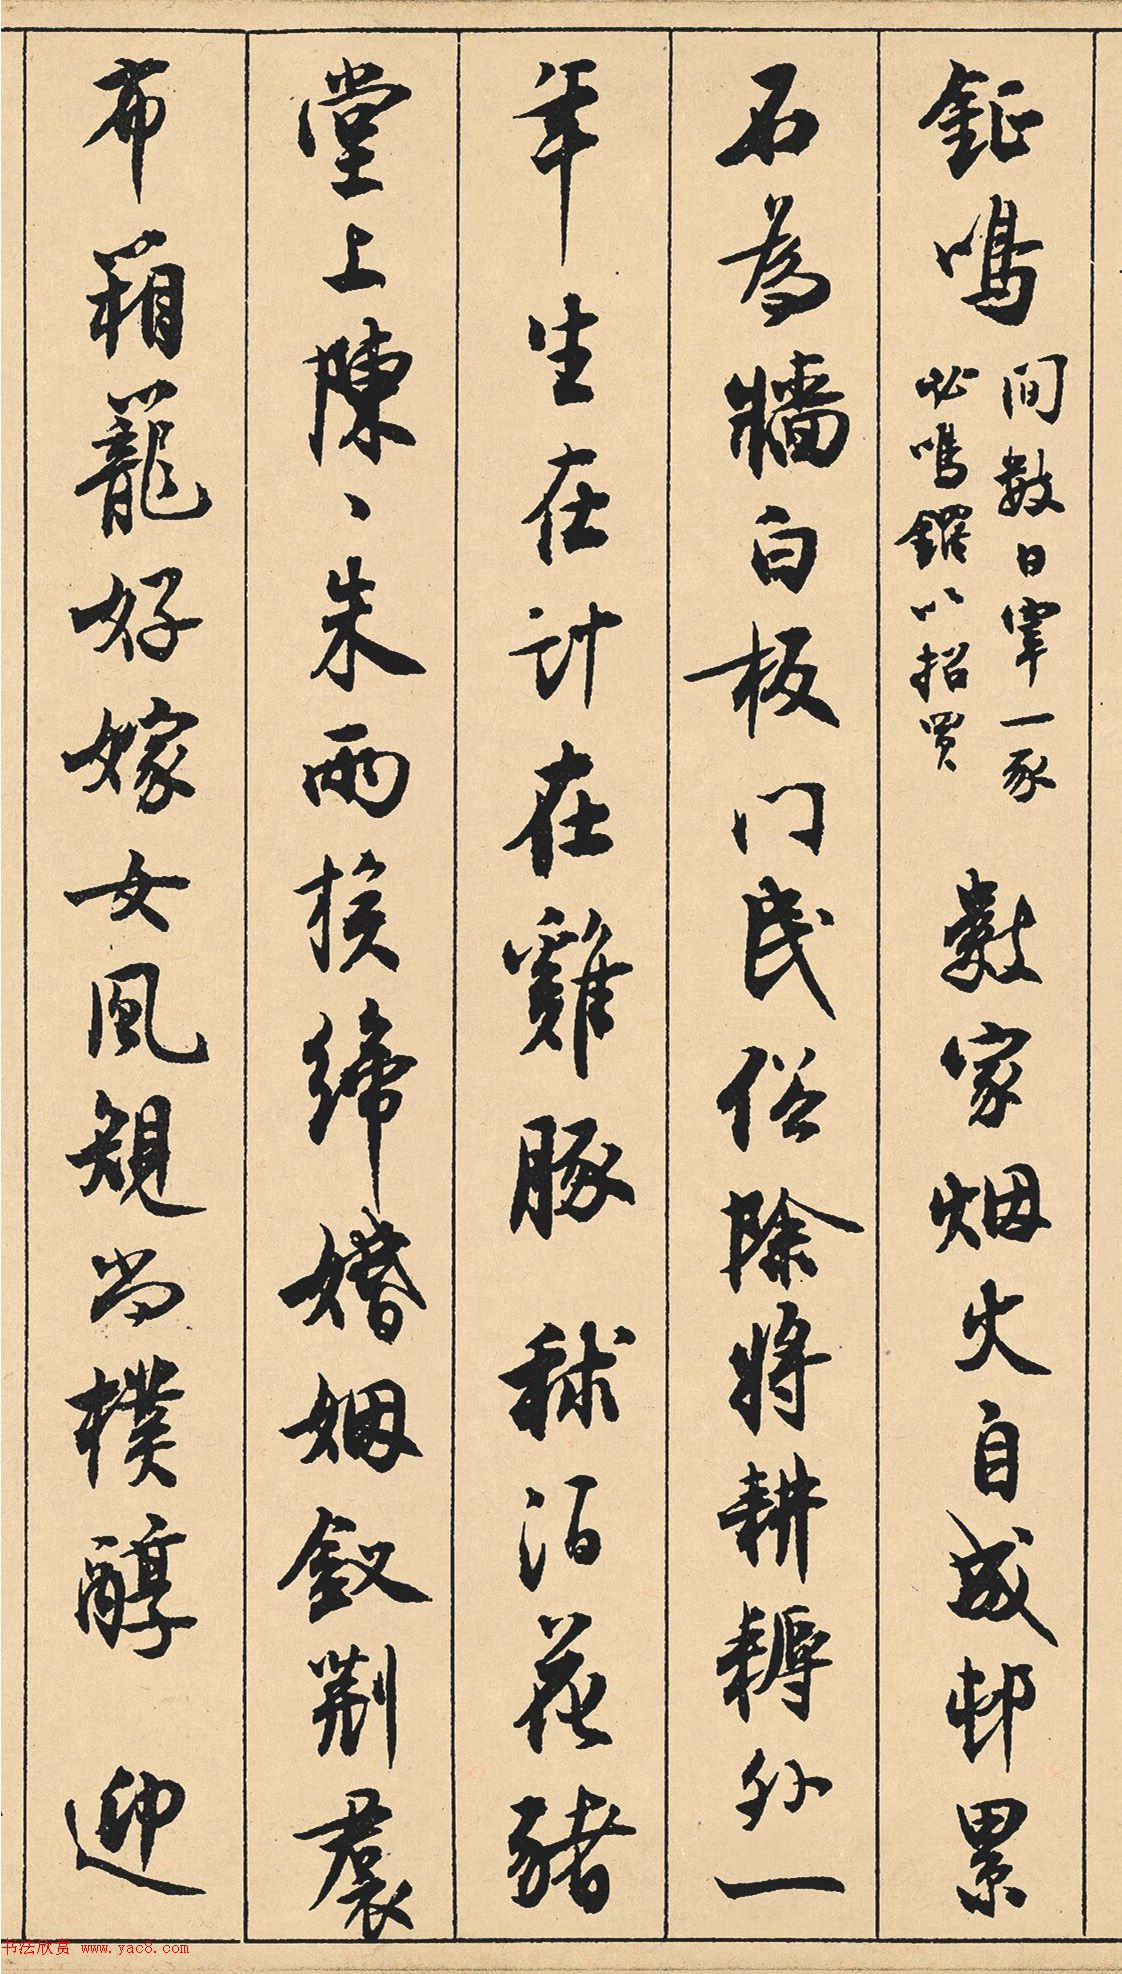 鉦鳴
间數日宰一豕
必鳴鑼以招買
數家烟火自成邨 累
石為牆白板门民俗除將耕耨外一
年生在计在雞豚 秫酒花豬
堂上陳、朱兩族締婚姻釵荆裠
布箱籠好嫁女風規尚樸醇 迎
书法欣赏 www.yac8.com